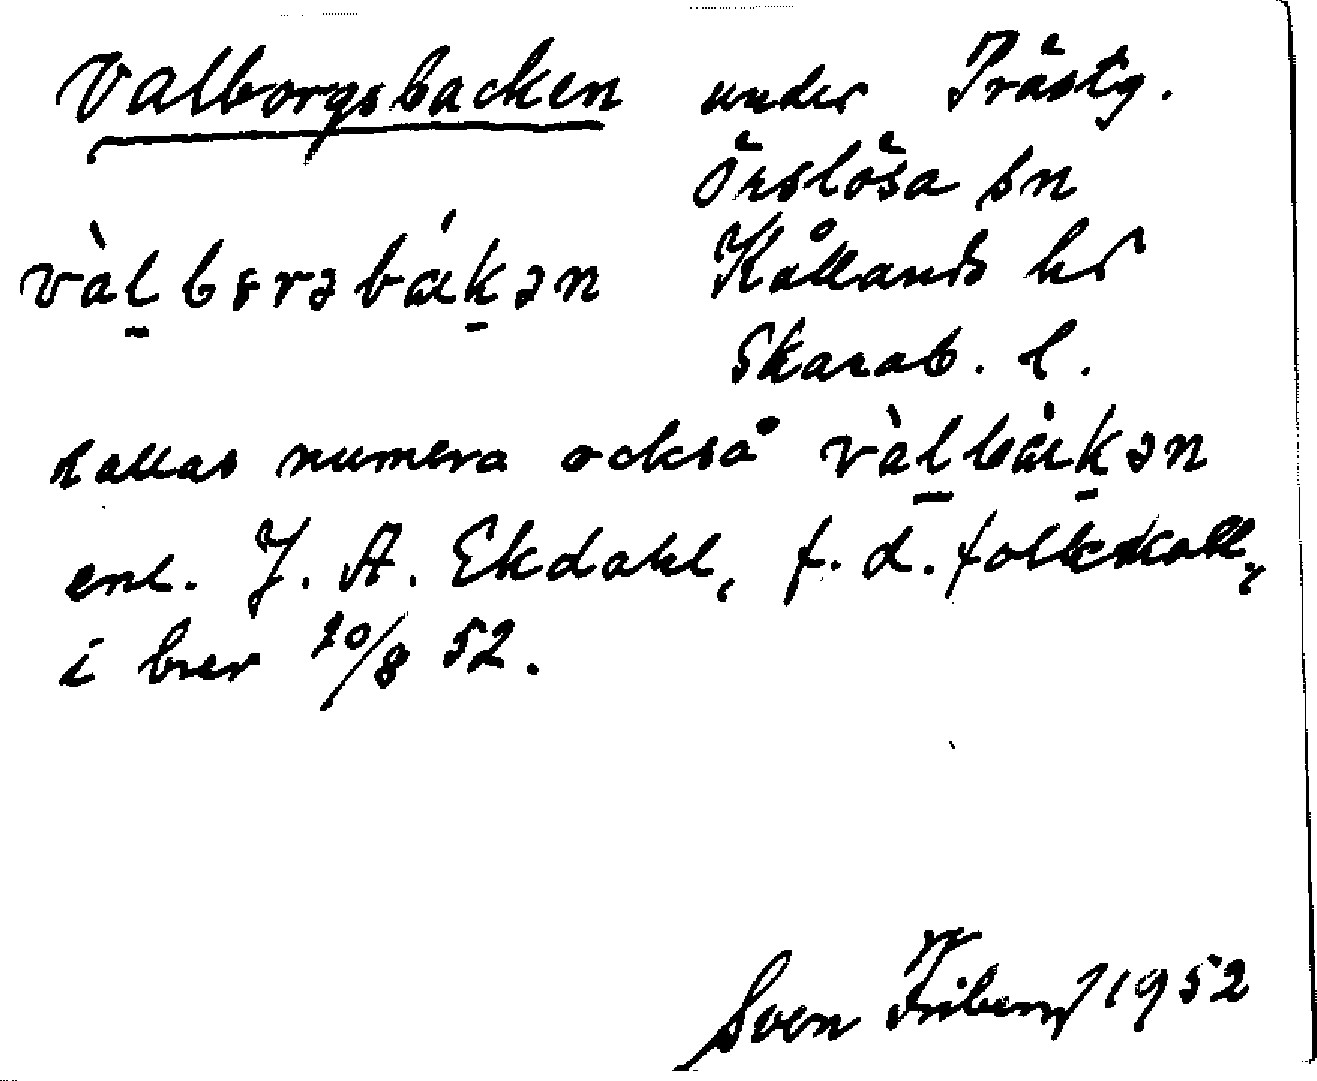 Valborgsbacken under Prästg.
Örslösa sn
vàlbɞrəbákən Kållands hd
Skarab. l.
kallas numera också vàlbàkən
enl. J. A. Ekdahl, f. d. folkskoll.,
i brev 20/8 52.
Sven Friberg 1952